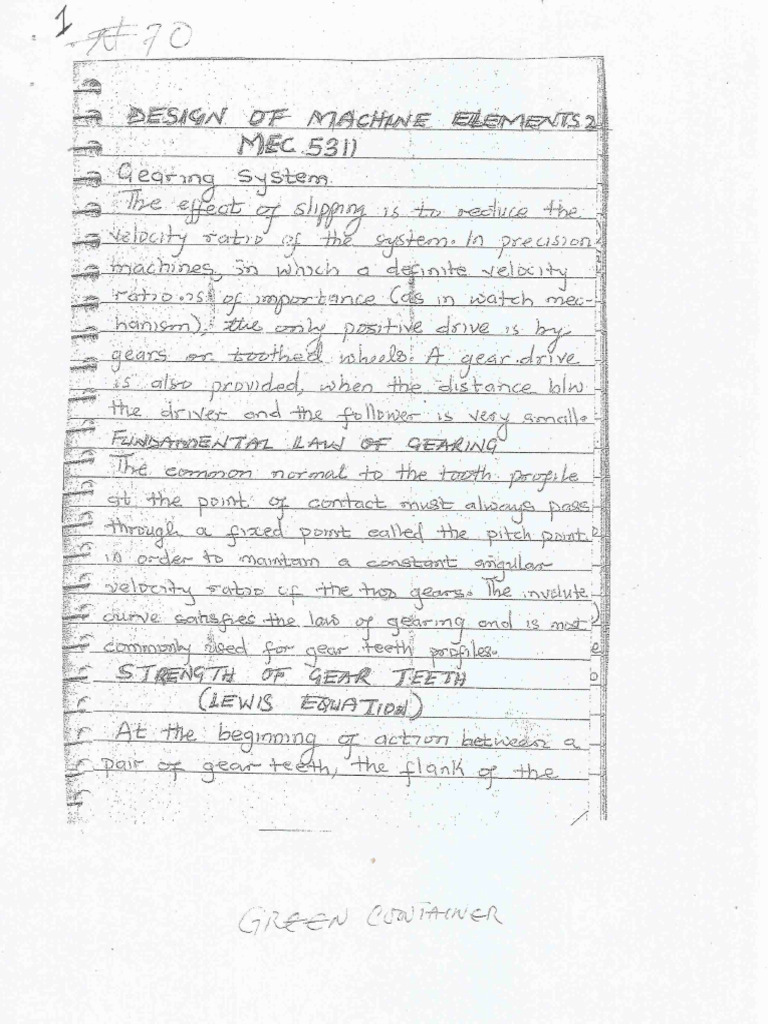 1
# 70
DESIGN OF MACHINE ELEMENTS 2
MEC 5311
Gearing System.
The effect of slipping is to reduce the
velocity ratio of the system. In precision
machines, in which a definite velocity
ratio is of importance (as in watch mec-
hanism), the only positive drive is by
gears or toothed wheels. A gear drive
is also provided, when the distance b/w
the driver and the follower is very small.
FUNDAMENTAL LAW OF GEARING
The common normal to the tooth profile
at the point of contact must always pass
through a fixed point called the pitch point
in order to maintain a constant angular
velocity ratio of the two gears. The involute
curve satisfies the law of gearing and is most
commonly used for gear teeth profiles.
STRENGTH OF GEAR TEETH
(LEWIS EQUATION)
At the beginning of action between a
pair of gear teeth, the flank of the
GREEN CONTAINER